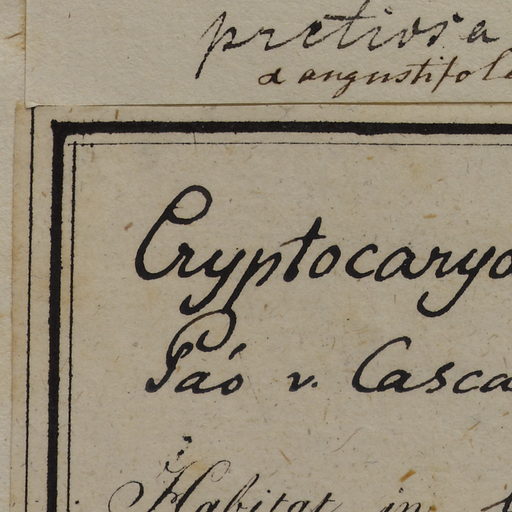 pretiosa
α angustifol
Cryptocarya
Paó v. Casca
Habitat in